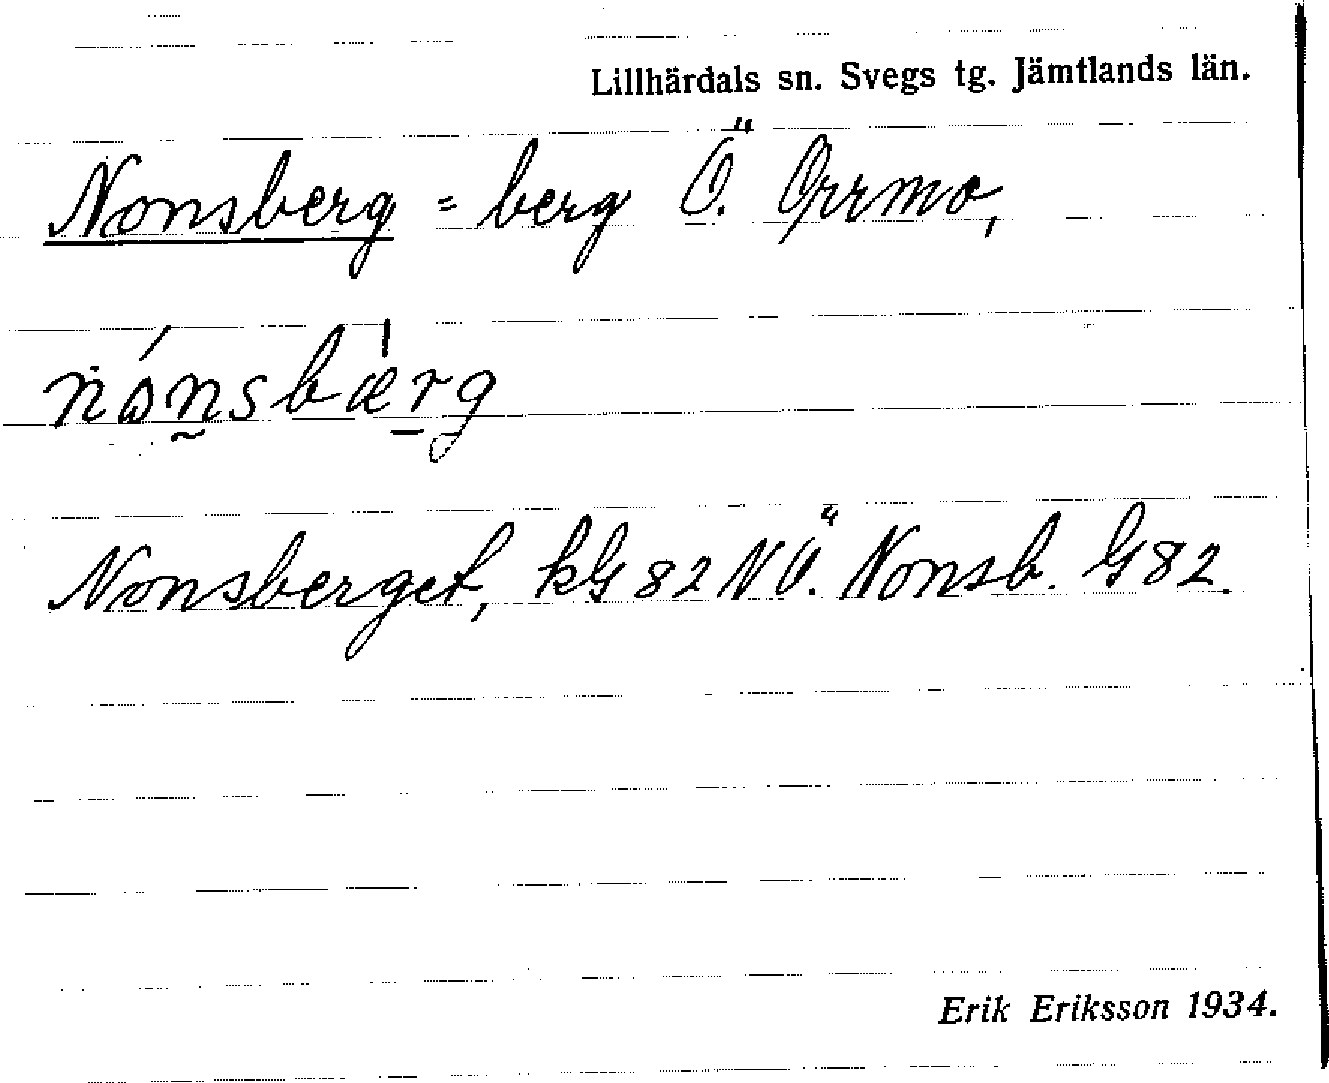 Lillhärdals sn. Svegs tg. Jämtlands län.
Nonsberg = berg Ö. Orrmo,
nónsbærg
Nonsberget, kG 82 NÖ. Nonsb. G 82.
Erik Eriksson 1934.